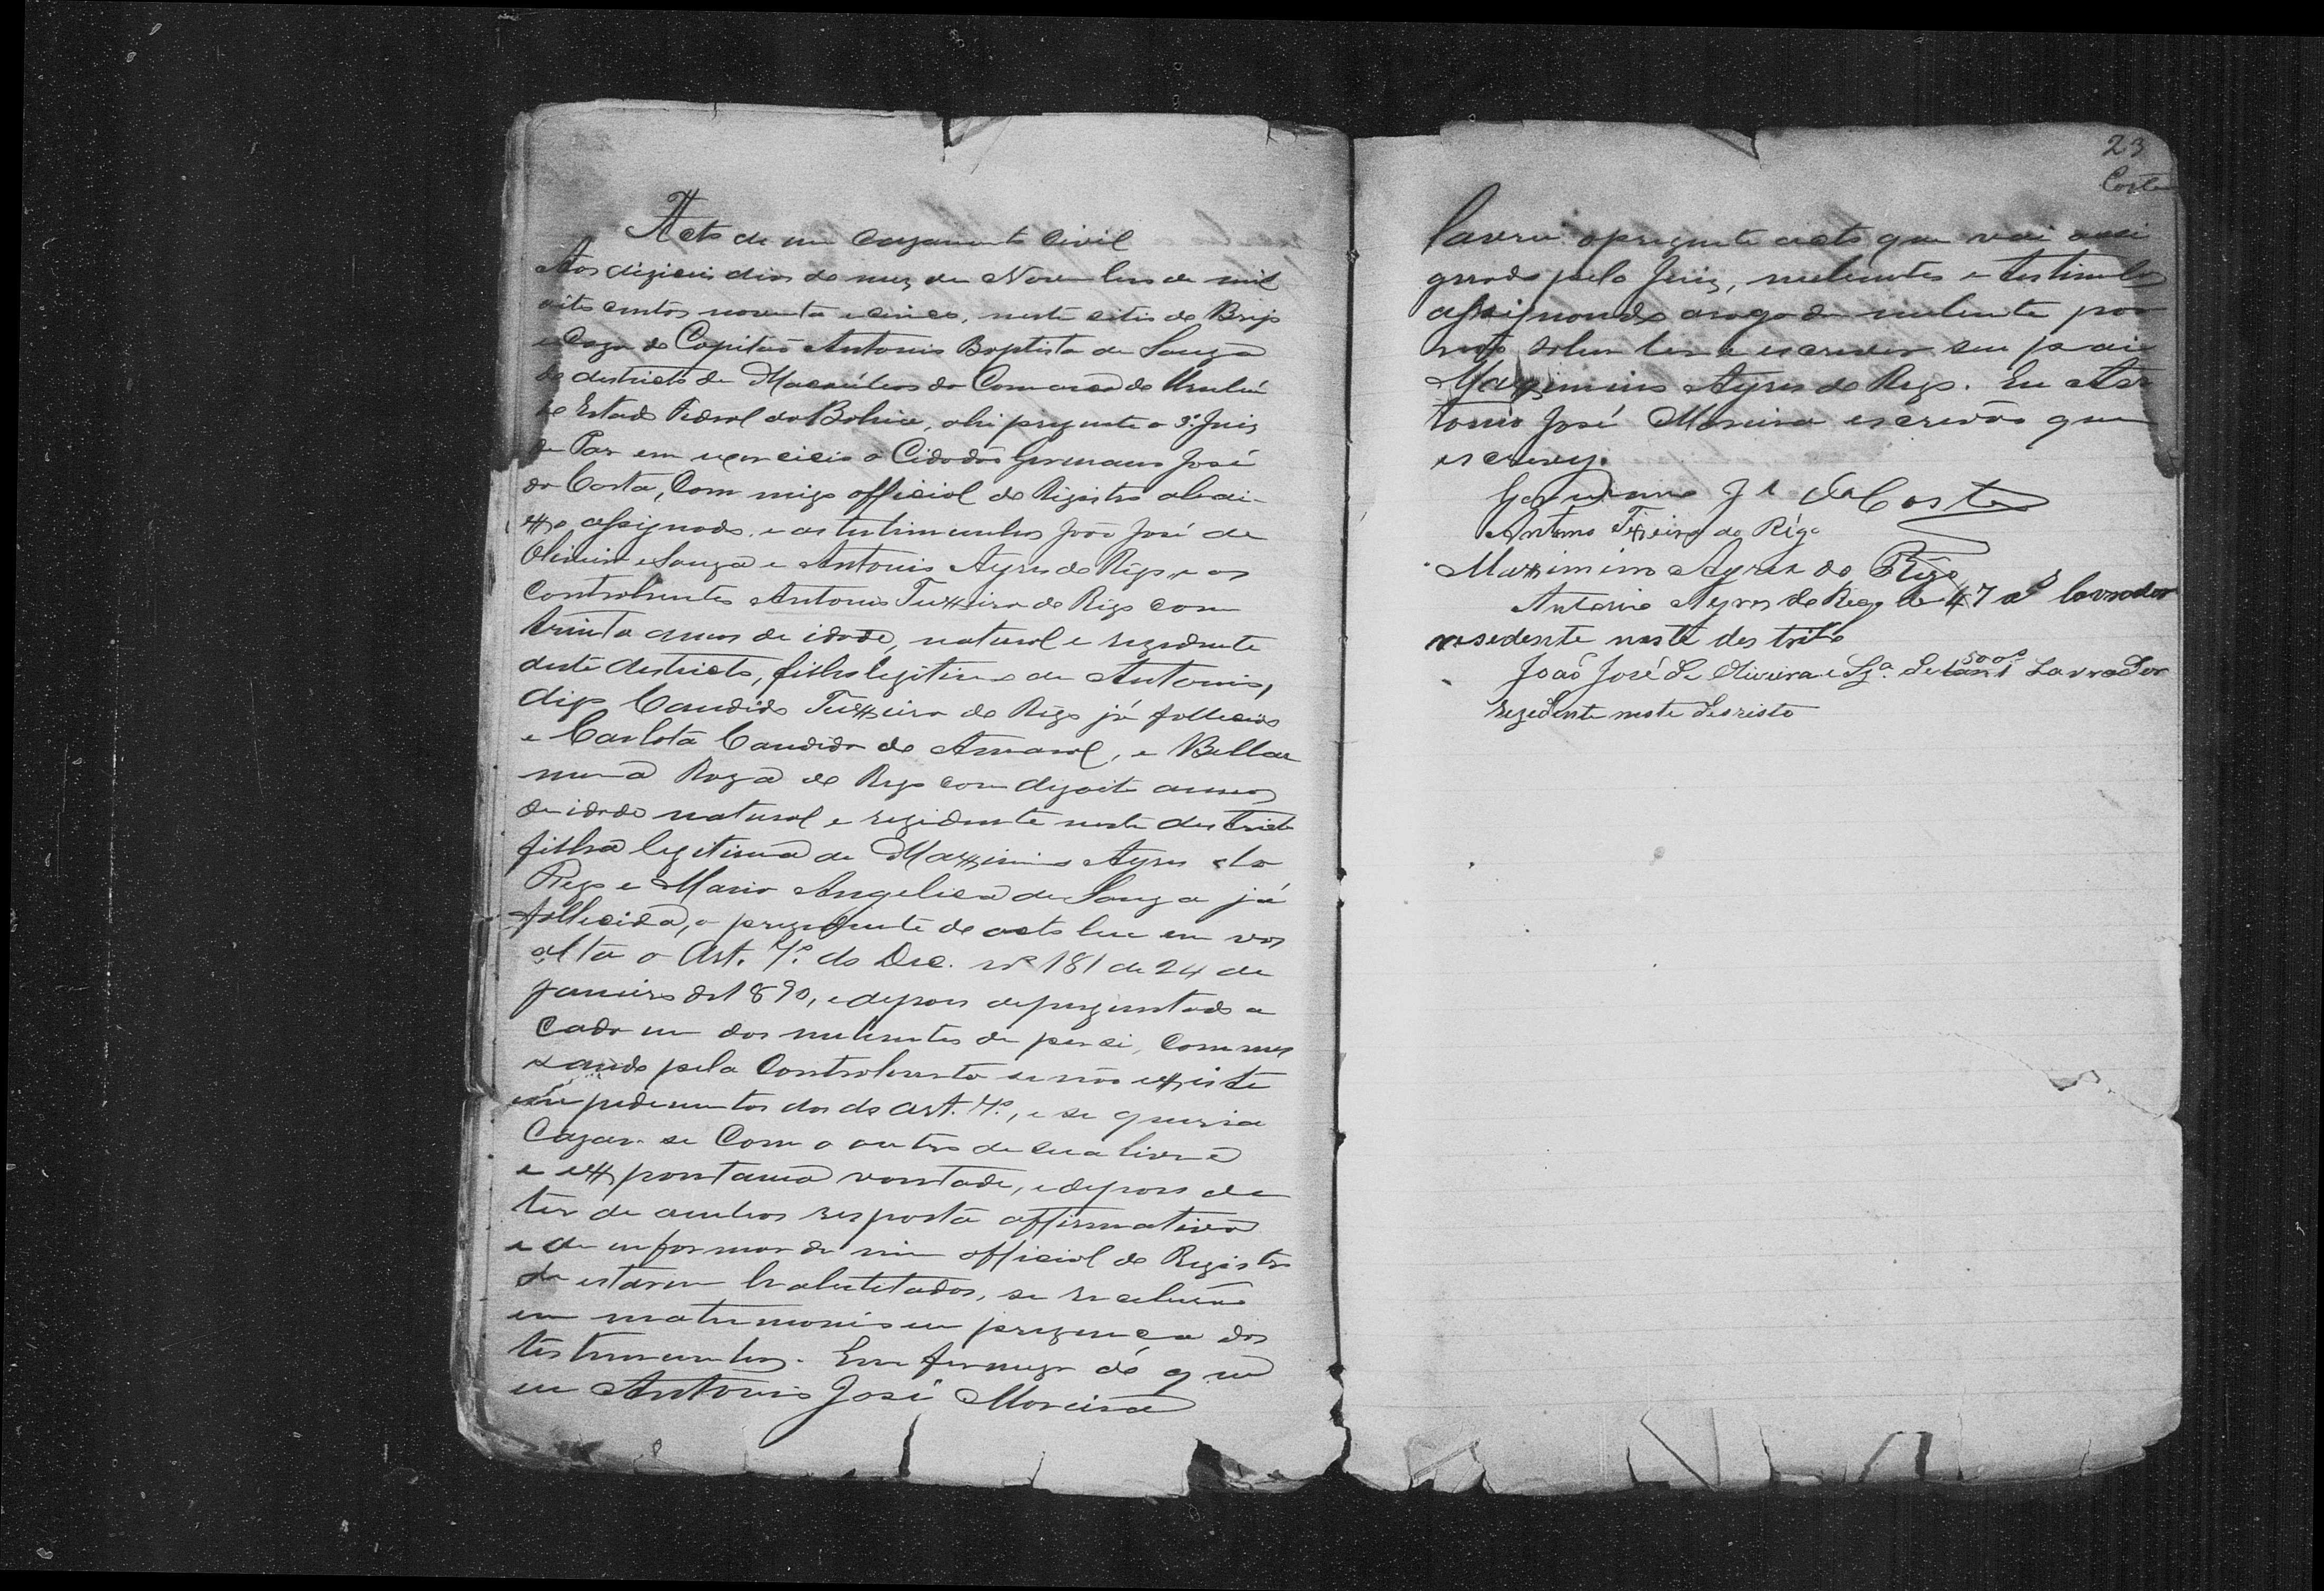 Acto de um Cazamento Civil
Aos dizieis dias do mez de Novembro de mil
oito centos noventa e cinco, neste citio do Brejo
e Caza do Capitão Antonio Baptista de Souza
do destricto de Macaúbas da Comarca de Urubú
do Estado Federal da Bahia, ahi prezente o 3º Juiz
de Paz em exercicio o Cidadão Germano José
da Costa, Com migo official do Rigistro abai-
xo assignado, e as testimunhas João José de
Oliveira e Souza e Antonio Ayres do Rêgo, e os
Contrahentes Antonio Teixeira do Rigo com
trinta annos de idade, natural e rezidente
deste destricto, filho legitimo de Antonio,
digo Candido Teixeira do Rêgo já fallecido
e Carlota Candida do Amaral, e Bellar
mina Roza do Rego com dezoito annos
de idade natural e rezidente neste destricto
filha legitima de Maximino Ayres do
Rego e Maria Angelica de Souza já
fallecida, o prezidente do acto leu em voz
alta o Art. 7º do Dec. nº 181 de 24 de
Janeiro de 1890, e depois de perguntado a
Cada um dos nubentes de per si, Comme
sando pela Contrahente se não existe
impedimentos dos do art. 7º, e se queria
Cazar-se Com o outro de sua livre
e expontania vontade, e depois de
ter de ambos resposta affirmativa
e de informar de mim official do Registro
de estarem habelitados, se recebêrão
em matrimonio em prezença das
testimunhas. Em firmeza do que
eu Antonio José Moreira
23
Costa
lavrei o prezente acto que vai assi
gnado pelo Juiz, nubentes e testimunhas
assignando arogo da nubente por
não saber ler e escrever seu pai
Maximino Ayres do Rego. Eu An
tonio José Moreira escrivão que
escrevy.
Germano J e da Costa
Antonio Teixeira do Rêgo
Maximino Ayres do Rêgo
Antonio Ayres do Rego de 47 as lavrador
resedente neste destrito
João José de Oliveira e Sza. de 50 as Lavrador
rezedente neste desristo